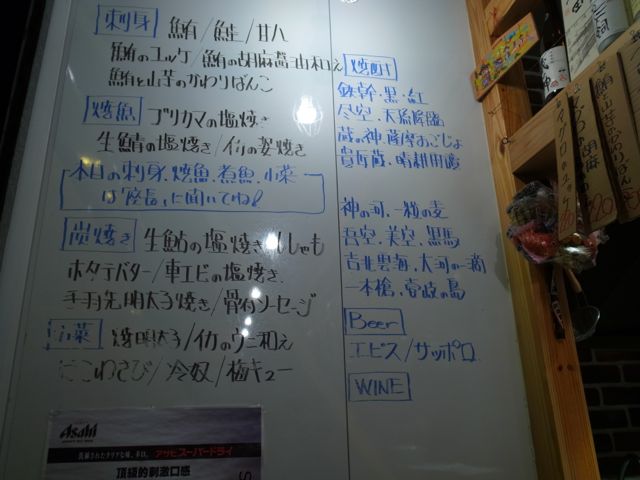 刺身 鮪/鮭/甘八
鮪のユッケ/鮪の胡麻醤油和え
鮪と山芋のかわりばんこ
焼魚 ブリカマの塩焼き
生鯖の塩焼き/イカの姿焼き
本日の刺身、焼魚、煮魚、小菜
は「座長」に聞いてね!
炭焼き 生鮎の塩焼き/ししゃも
ホタテバター/車エビの塩焼き
手羽先明太子焼き/骨付ソーセージ
焼明太子/イカのウニ和え
たこわさび/冷奴/梅キュー
焼酎
鉄幹・黒・紅
尽空・天孫降臨
蔵の神・薩摩おごじょ
貴匠蔵・晴耕雨読
神の河・一粒の麦
吾空・美空・黒馬
吉北雲海・大河の一滴
一本槍・壱岐の島
Beer
エビス/サッポロ
WINE
Asahi
洗練されたクリアな味、辛口。
アサヒスーパードライ
頂級的刺激口感
マグロのユッケ